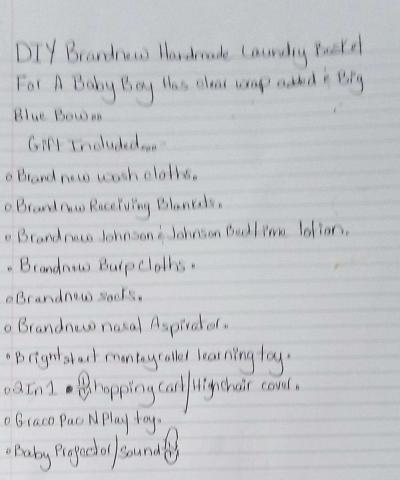 DIY Brandnew Handmade Laundry Basket
For A Baby Boy Has clear wrap added & Big
Blue Bow..
Gift Included...
o Brand new wash cloths.
o Brandnew Receiving Blankets.
o Brandnew Johnson & Johnson Bedtime lotion.
• Brandnew Burpcloths.
o Brandnew socks.
o Brandnew nasal Aspirator.
• Brightstart learning toy.
o 2In1 • Shopping cart/Highchair cover.
o Graco Pac N Play toy.
o Baby Projector/Sound